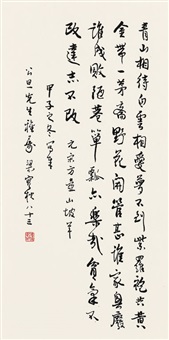 青山相待白雲相愛夢不到紫羅袍共黃
金帶一茅齋野花開管甚誰家興廢
誰成敗陋巷簞瓢亦樂哉貧氣不
改達志不改
元宋方壺山坡羊
甲子之冬寫奉
公旦先生雅屬 梁實秋八十三